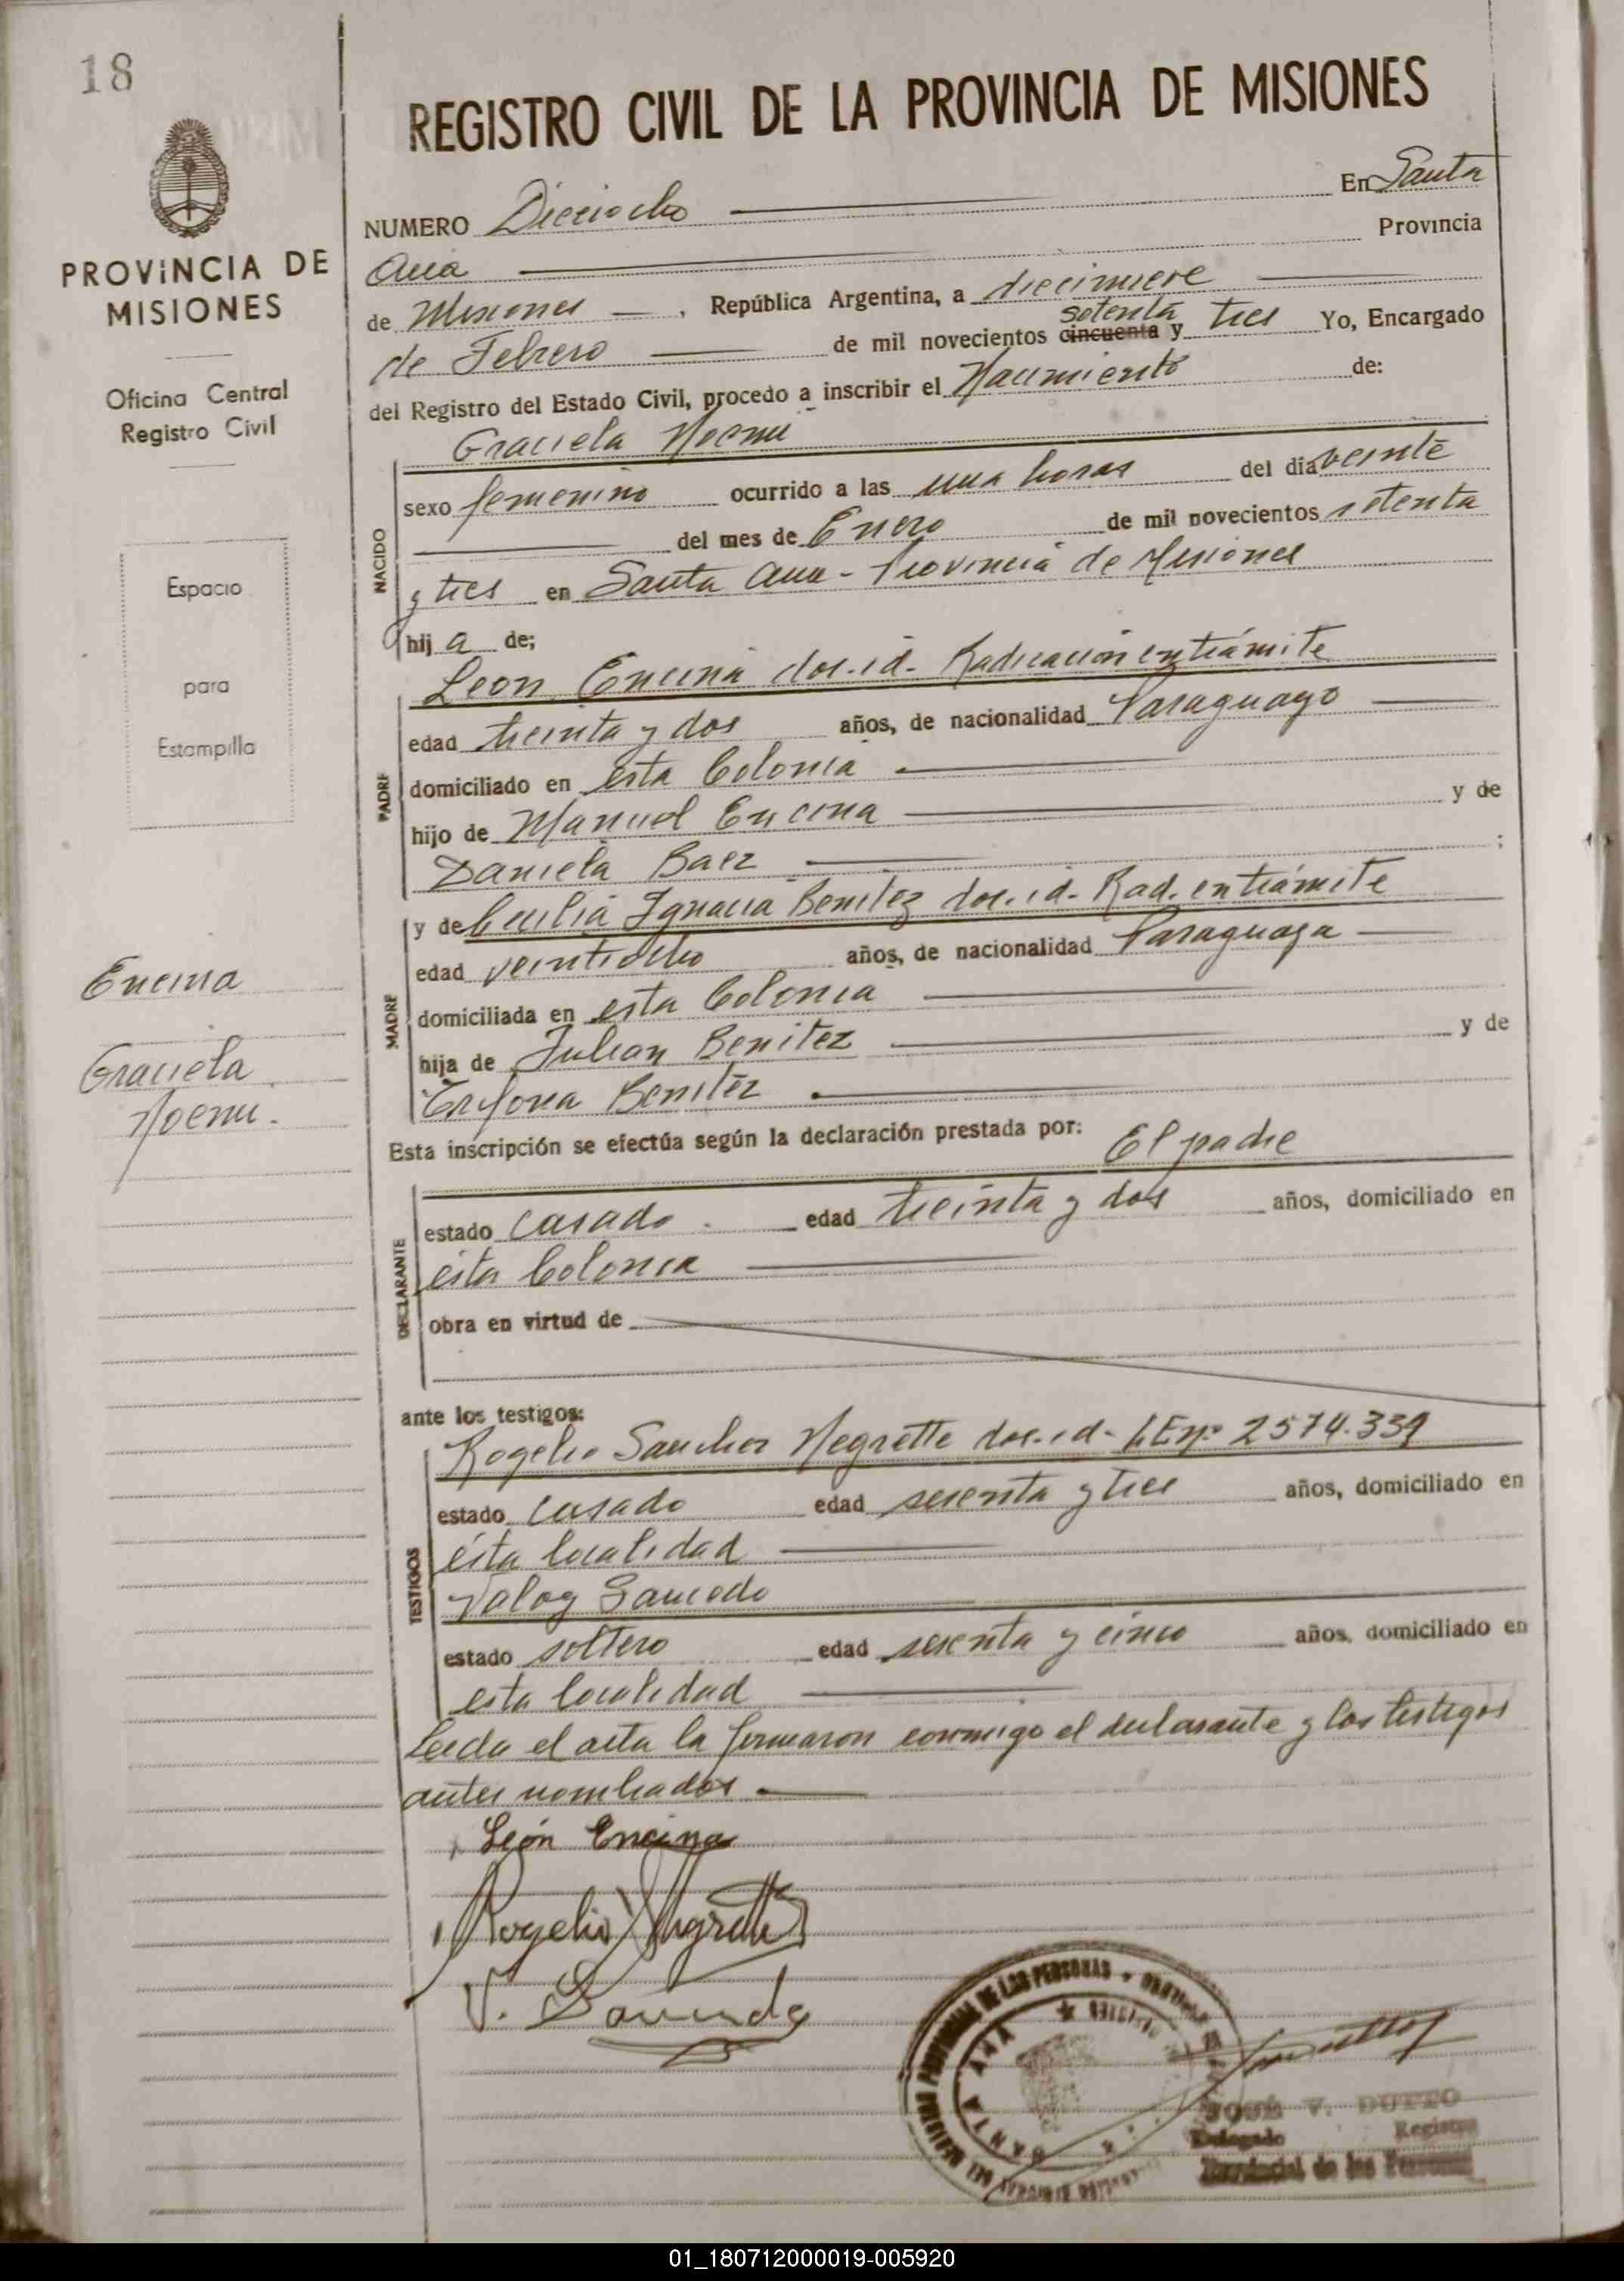 18
REGISTRO CIVIL DE LA PROVINCIA DE MISIONES
PROVINCIA DE
MISIONES
Oficina Central
Registro Civil
Espacio
para
Estampilla
Encina
Graciela
Noemi.
NUMERO Dieciocho En Santa
Ana Provincia
de Misiones, República Argentina, a diecinueve
de Febrero de mil novecientos cincuenta setenta y tres Yo, Encargado
del Registro del Estado Civil, procedo a inscribir el Nacimiento de:
Graciela Noemi
NACIDO
sexo femenino ocurrido a las una horas del dia veinte
del mes de Enero de mil novecientos setenta
y tres en Santa Ana - Provincia de Misiones
hij a de;
Leon Encina doc. id. Radicacion en trámite
PADRE
edad treinta y dos años, de nacionalidad Paraguayo
domiciliado en esta Colonia
hijo de Manuel Encina y de
Daniela Baez ;
y de Cecilia Ignacia Benitez doc. id. Rad. en trámite
MADRE
edad veintiocho años, de nacionalidad Paraguaya
domiciliada en esta Colonia
hija de Julian Benitez y de
Benitez
Esta inscripción se efectúa según la declaración prestada por: El padre
DECLARANTE
estado casado. edad treinta y dos años, domiciliado en
esta Colonia
obra en virtud de
ante los testigos:
Rogelio Sanchez Negrette doc. id. LE Nº 2574.339
TESTIGOS
estado casado edad sesenta y tres años, domiciliado en
ésta localidad
estado soltero edad sesenta y cinco años, domiciliado en
esta localidad
Leida el acta la firmaron conmigo el declarante y los testigos
antes nombrados
León Encina
Rogelio Negrette
SANTA ANA
JOSÉ V. DUTTO
Delegado Registro
Provincial de las Personas
01_180712000019-005920